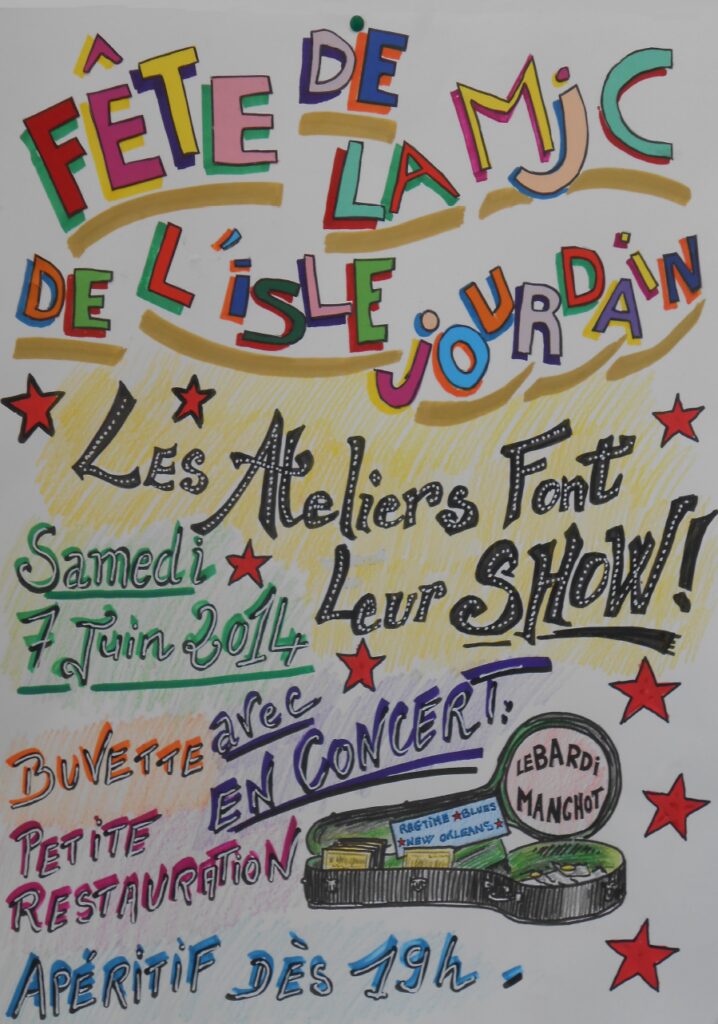 FÊTE DE LA MjC
DE L'iSLE jOURDAiN
LES Ateliers Font
Leur SHOW!
Samedi
7 Juin 2014
avec
EN CONCERT:
BUVETTE
LEBARDi
MANCHOT
RAGTIME ★ BLUES
★ NEW ORLEANS ★
PETiTE
RESTAURATION
APÉRITIF DÈS 19h.